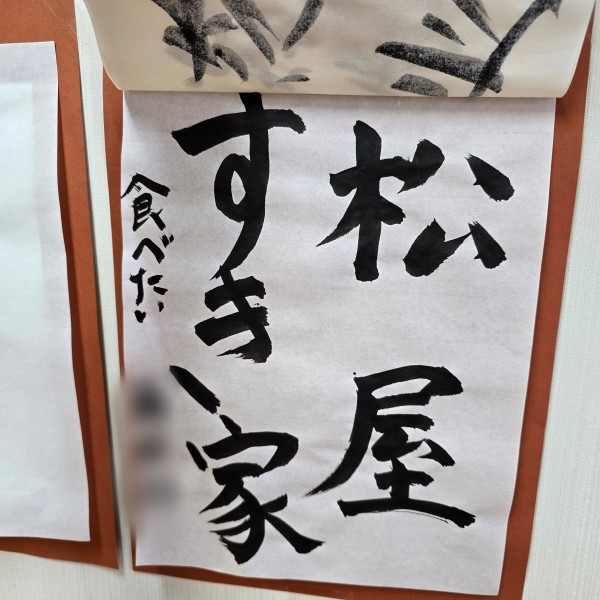 松屋
すき家
食べたい